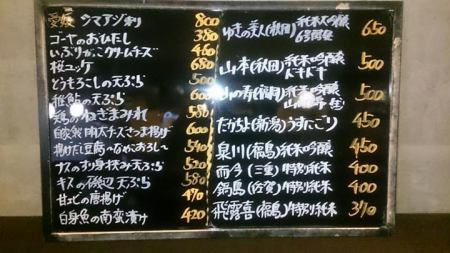 愛媛 シマアジ刺 800
ゴーヤのおひたし 380
いぶりがっこクリームチーズ 460
桜ユッケ 680
とうもろこしの天ぷら 500
稚鮎の天ぷら 600
鶏のねぎまみれ 580
自家製明太チーズさつま揚げ 600
揚げだし豆腐〜なめこおろし〜 540
ナスのすり身挟み天ぷら 520
キスの磯辺天ぷら 580
甘エビの唐揚げ 470
白身魚の南蛮漬け 420
ゆきの美人(秋田)純米大吟醸 650
山本(秋田)純米吟醸 ドキドキ 500
山の寿(福岡)純米吟醸 500
たかちよ(新潟)うすにごり 450
泉川(福島)純米吟醸 450
而今(三重)特別純米 400
鍋島(佐賀)特別純米 400
飛露喜(福島)特別純米 370